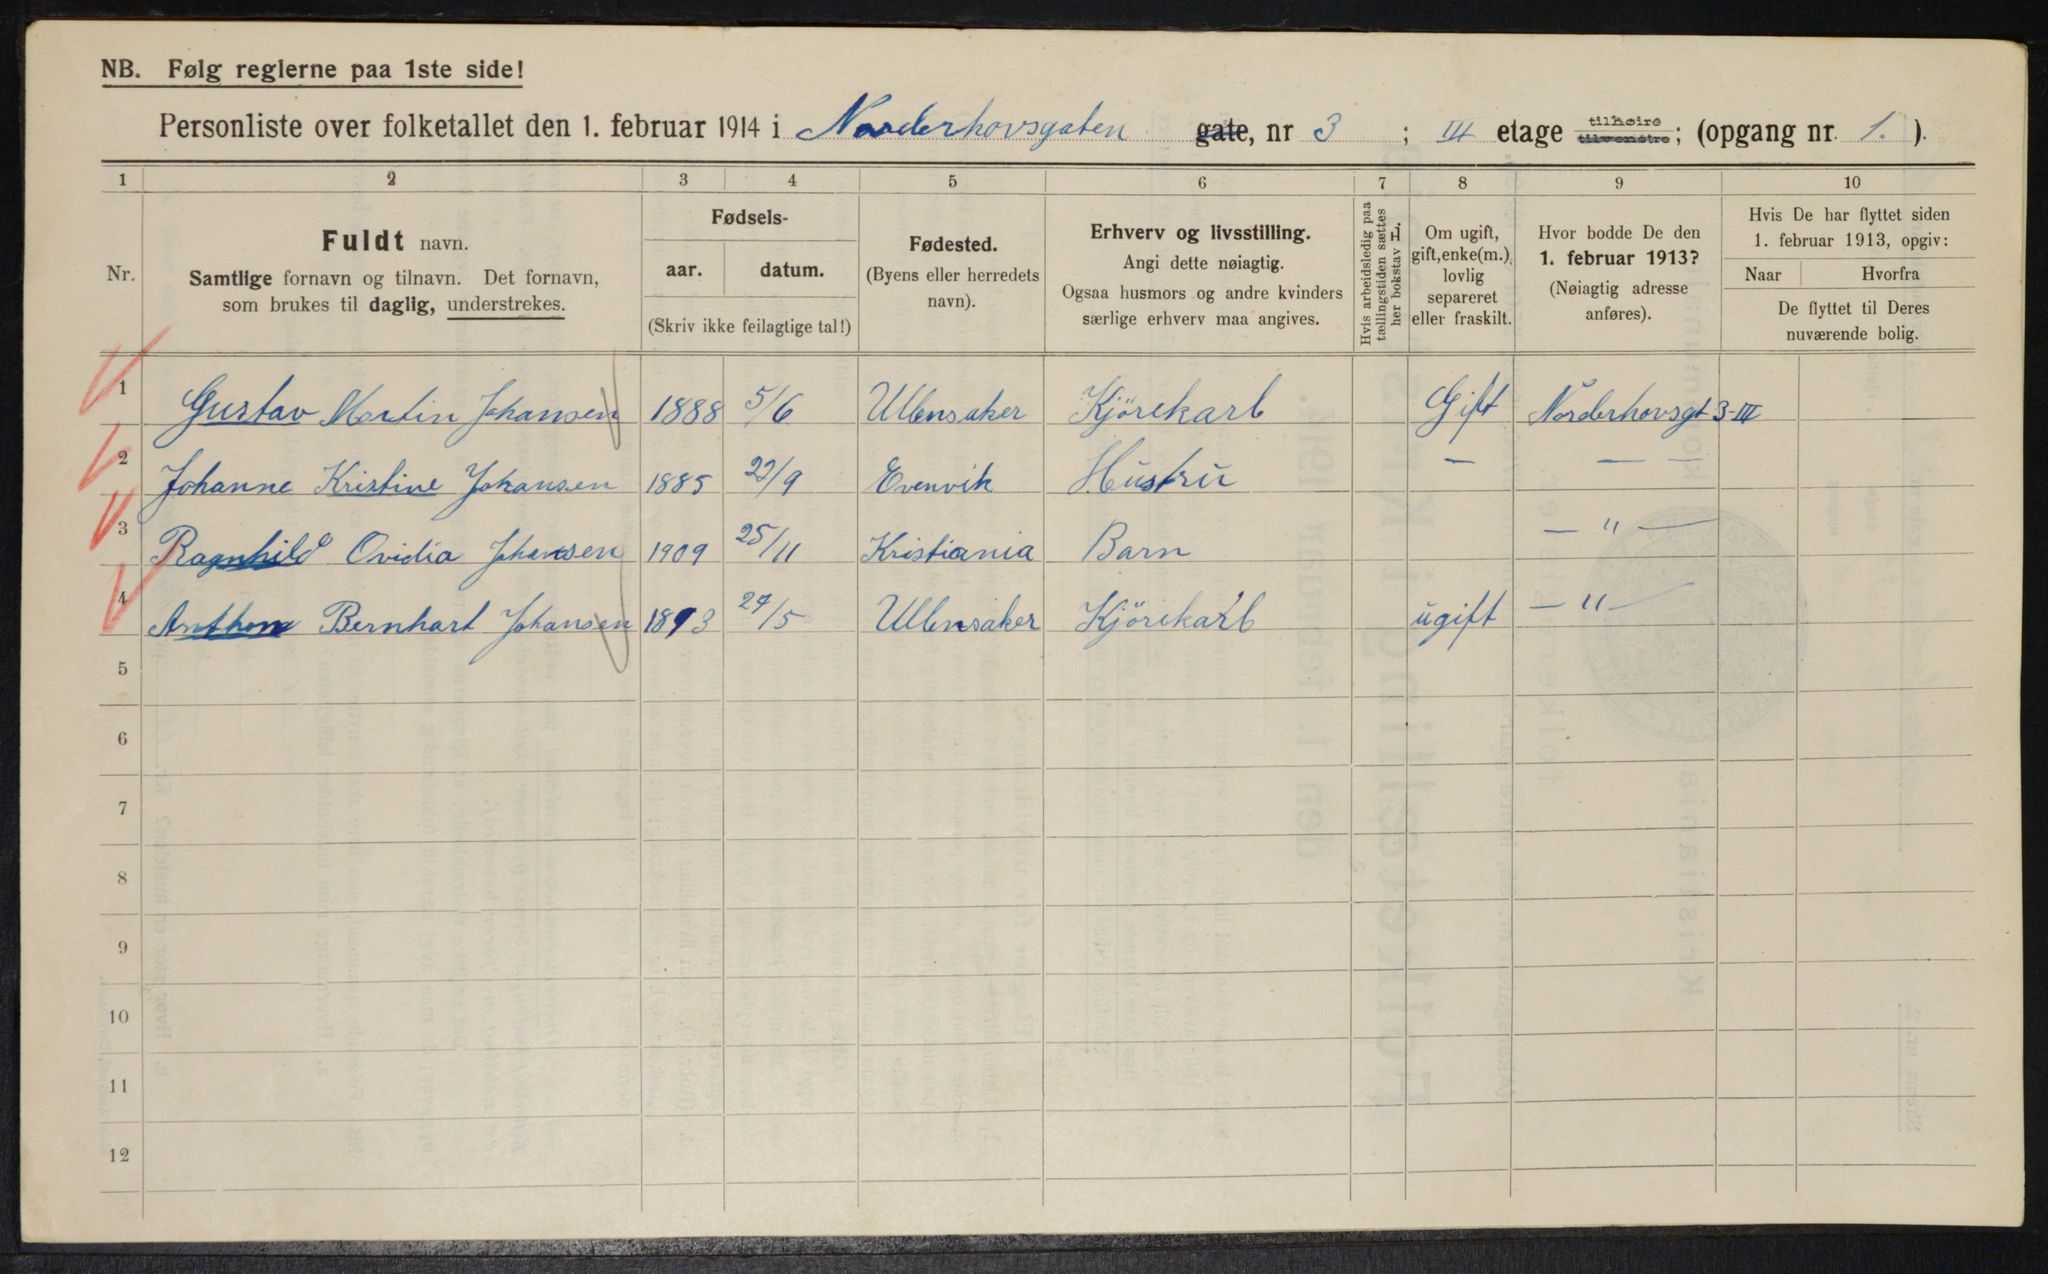 NB. Følg reglerne paa 1ste side!
Personliste over folketallet den 1. februar 1914 i Norderhovsgaten gate, nr 3 ; III etage tilhøire tilvenstre; (opgang nr. 1. ).
1 2 3 4 5 6 7 8 9 10
Nr.
Fuldt navn.
Samtlige fornavn og tilnavn. Det fornavn,
som brukes til daglig, understrekes.
Fødsels-
aar. datum.
(Skriv ikke feilagtige tal!)
Fødested.
(Byens eller herredets
navn).
Erhverv og livsstilling.
Angi dette nøiagtig.
Ogsaa husmors og andre kvinders
særlige erhverv maa angives.
Hvis arbeidsledig paa
tællingstiden sættes
her bokstav L.
Om ugift,
gift, enke(m.),
lovlig
separeret
eller fraskilt.
Hvor bodde De den
1. februar 1913?
(Nøiagtig adresse
anføres).
Hvis De har flyttet siden
1. februar 1913, opgiv:
Naar Hvorfra
De flyttet til Deres
nuværende bolig.
1 Gustav Martin Johansen 1888 5/6 Ullensaker Kjörekarl Gift Norderhovsgt 3-III
2 Johanne Kristine Johansen 1885 22/9 Evenvik Hustru — — —
3 Ragnhild Ovidia Johansen 1909 25/11 Kristiania Barn — " —
4 Anthon Bernhart Johansen 1893 24/5 Ullensaker Kjörekarl ugift — " —
5
6
7
8
9
10
11
12